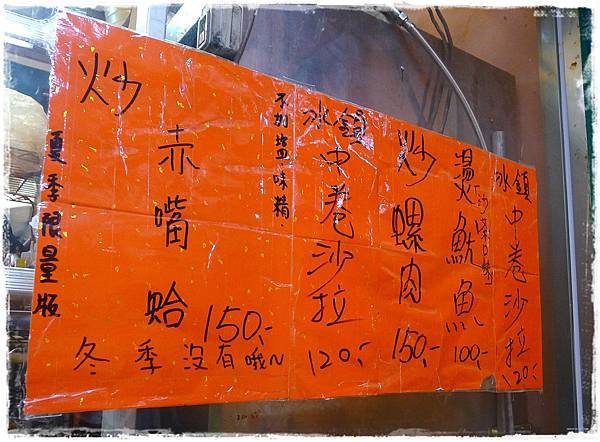 冰鎮中卷沙拉 120.-
燙魷魚 100.-
炒螺肉 150.-
冰鎮中卷沙拉 120.-
不加鹽味精.
炒赤嘴蛤 150.-
夏季限量版
冬季沒有哦~